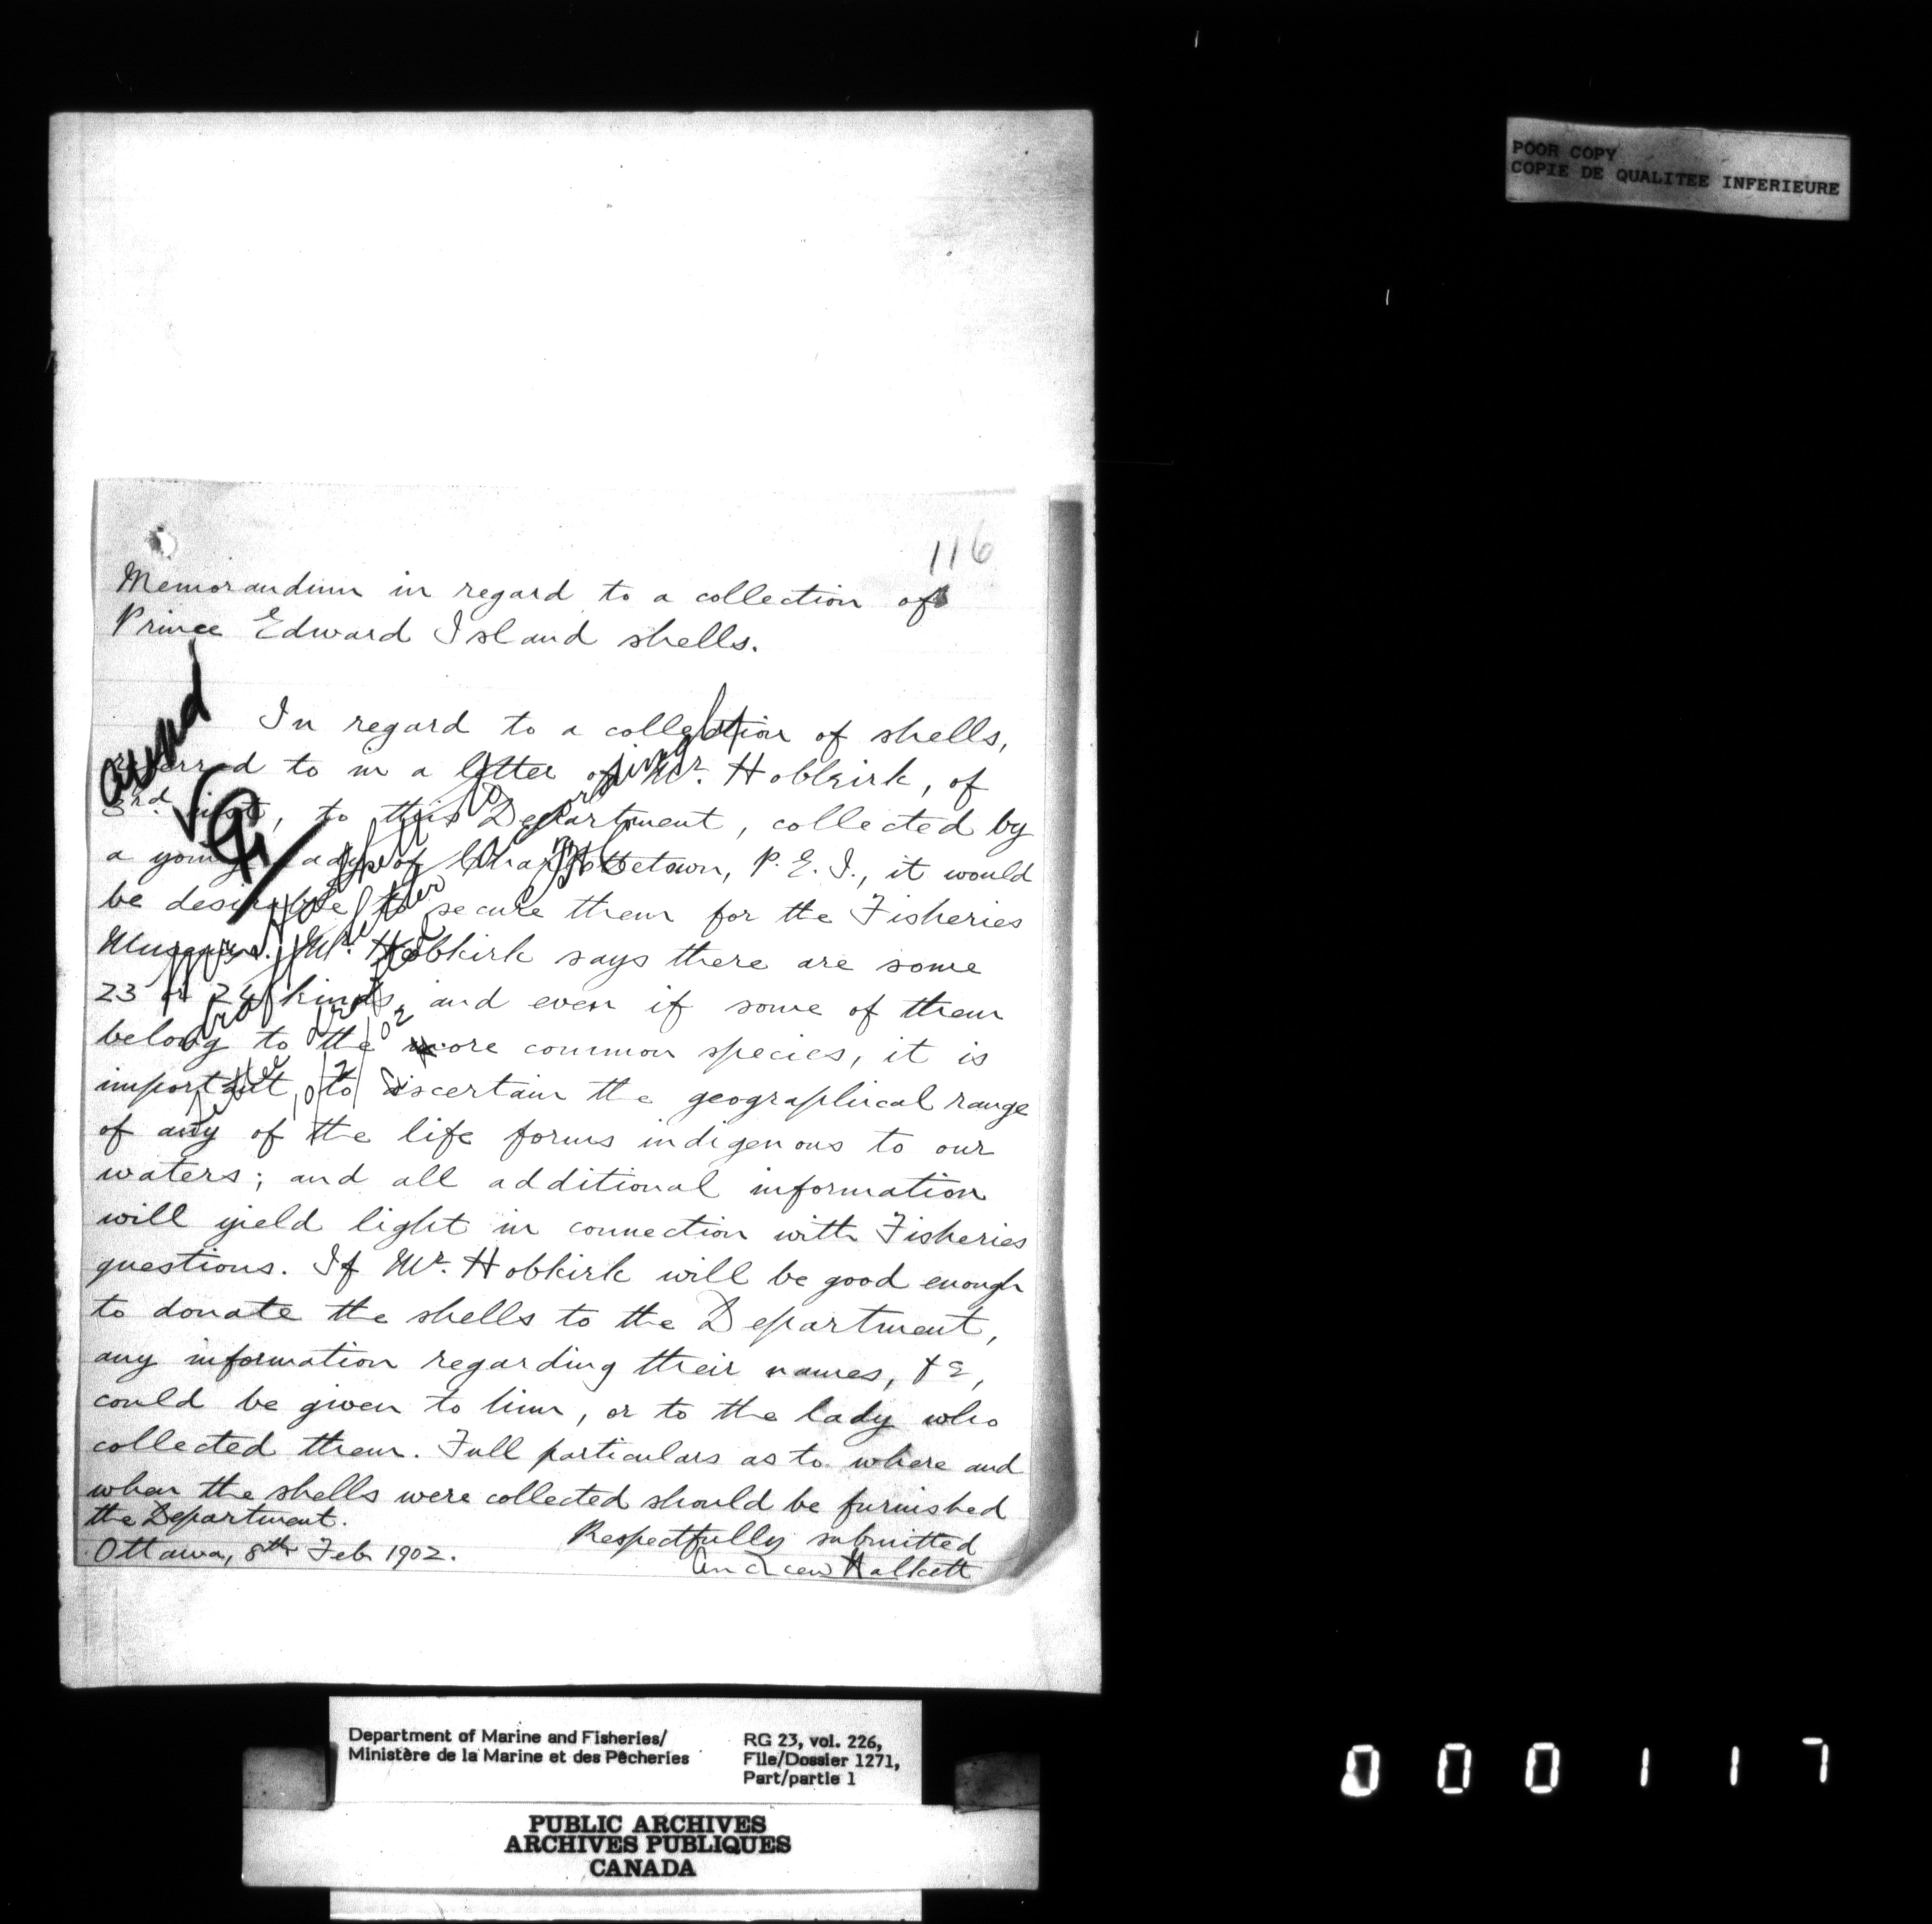 POOR COPY
COPIE DE QUALITEE INFERIEURE
116
Memorandum in regard to a collection of
Prince Edward Island shells.
In regard to a collection of shells,
referred to in a letter of Mr. Hobkirk, of
3rd. inst, to this Department, collected by
a young lady of Charlottetown, P. E. I., it would
be desirable to secure them for the Fisheries
Museum. Mr. Hobkirk says there are some
23 or 24 kinds, and even if some of them
belong to the more common species, it is
important to ascertain the geographical range
of any of the life forms indigenous to our
waters; and all additional information
will yield light in connection with Fisheries
questions. If Mr. Hobkirk will be good enough
to donate the shells to the Department,
any information regarding their names, &c,
could be given to him, or to the lady who
collected them. Full particulars as to where and
when the shells were collected should be furnished
the Department.
Respectfully submitted
Ottawa, 8th Feb 1902.
Andrew Halkett
Department of Marine and Fisheries/
Ministère de la Marine et des Pêcheries
RG 23, vol. 226,
File/Dossier 1271,
Part/partie 1
PUBLIC ARCHIVES
ARCHIVES PUBLIQUES
CANADA
000117